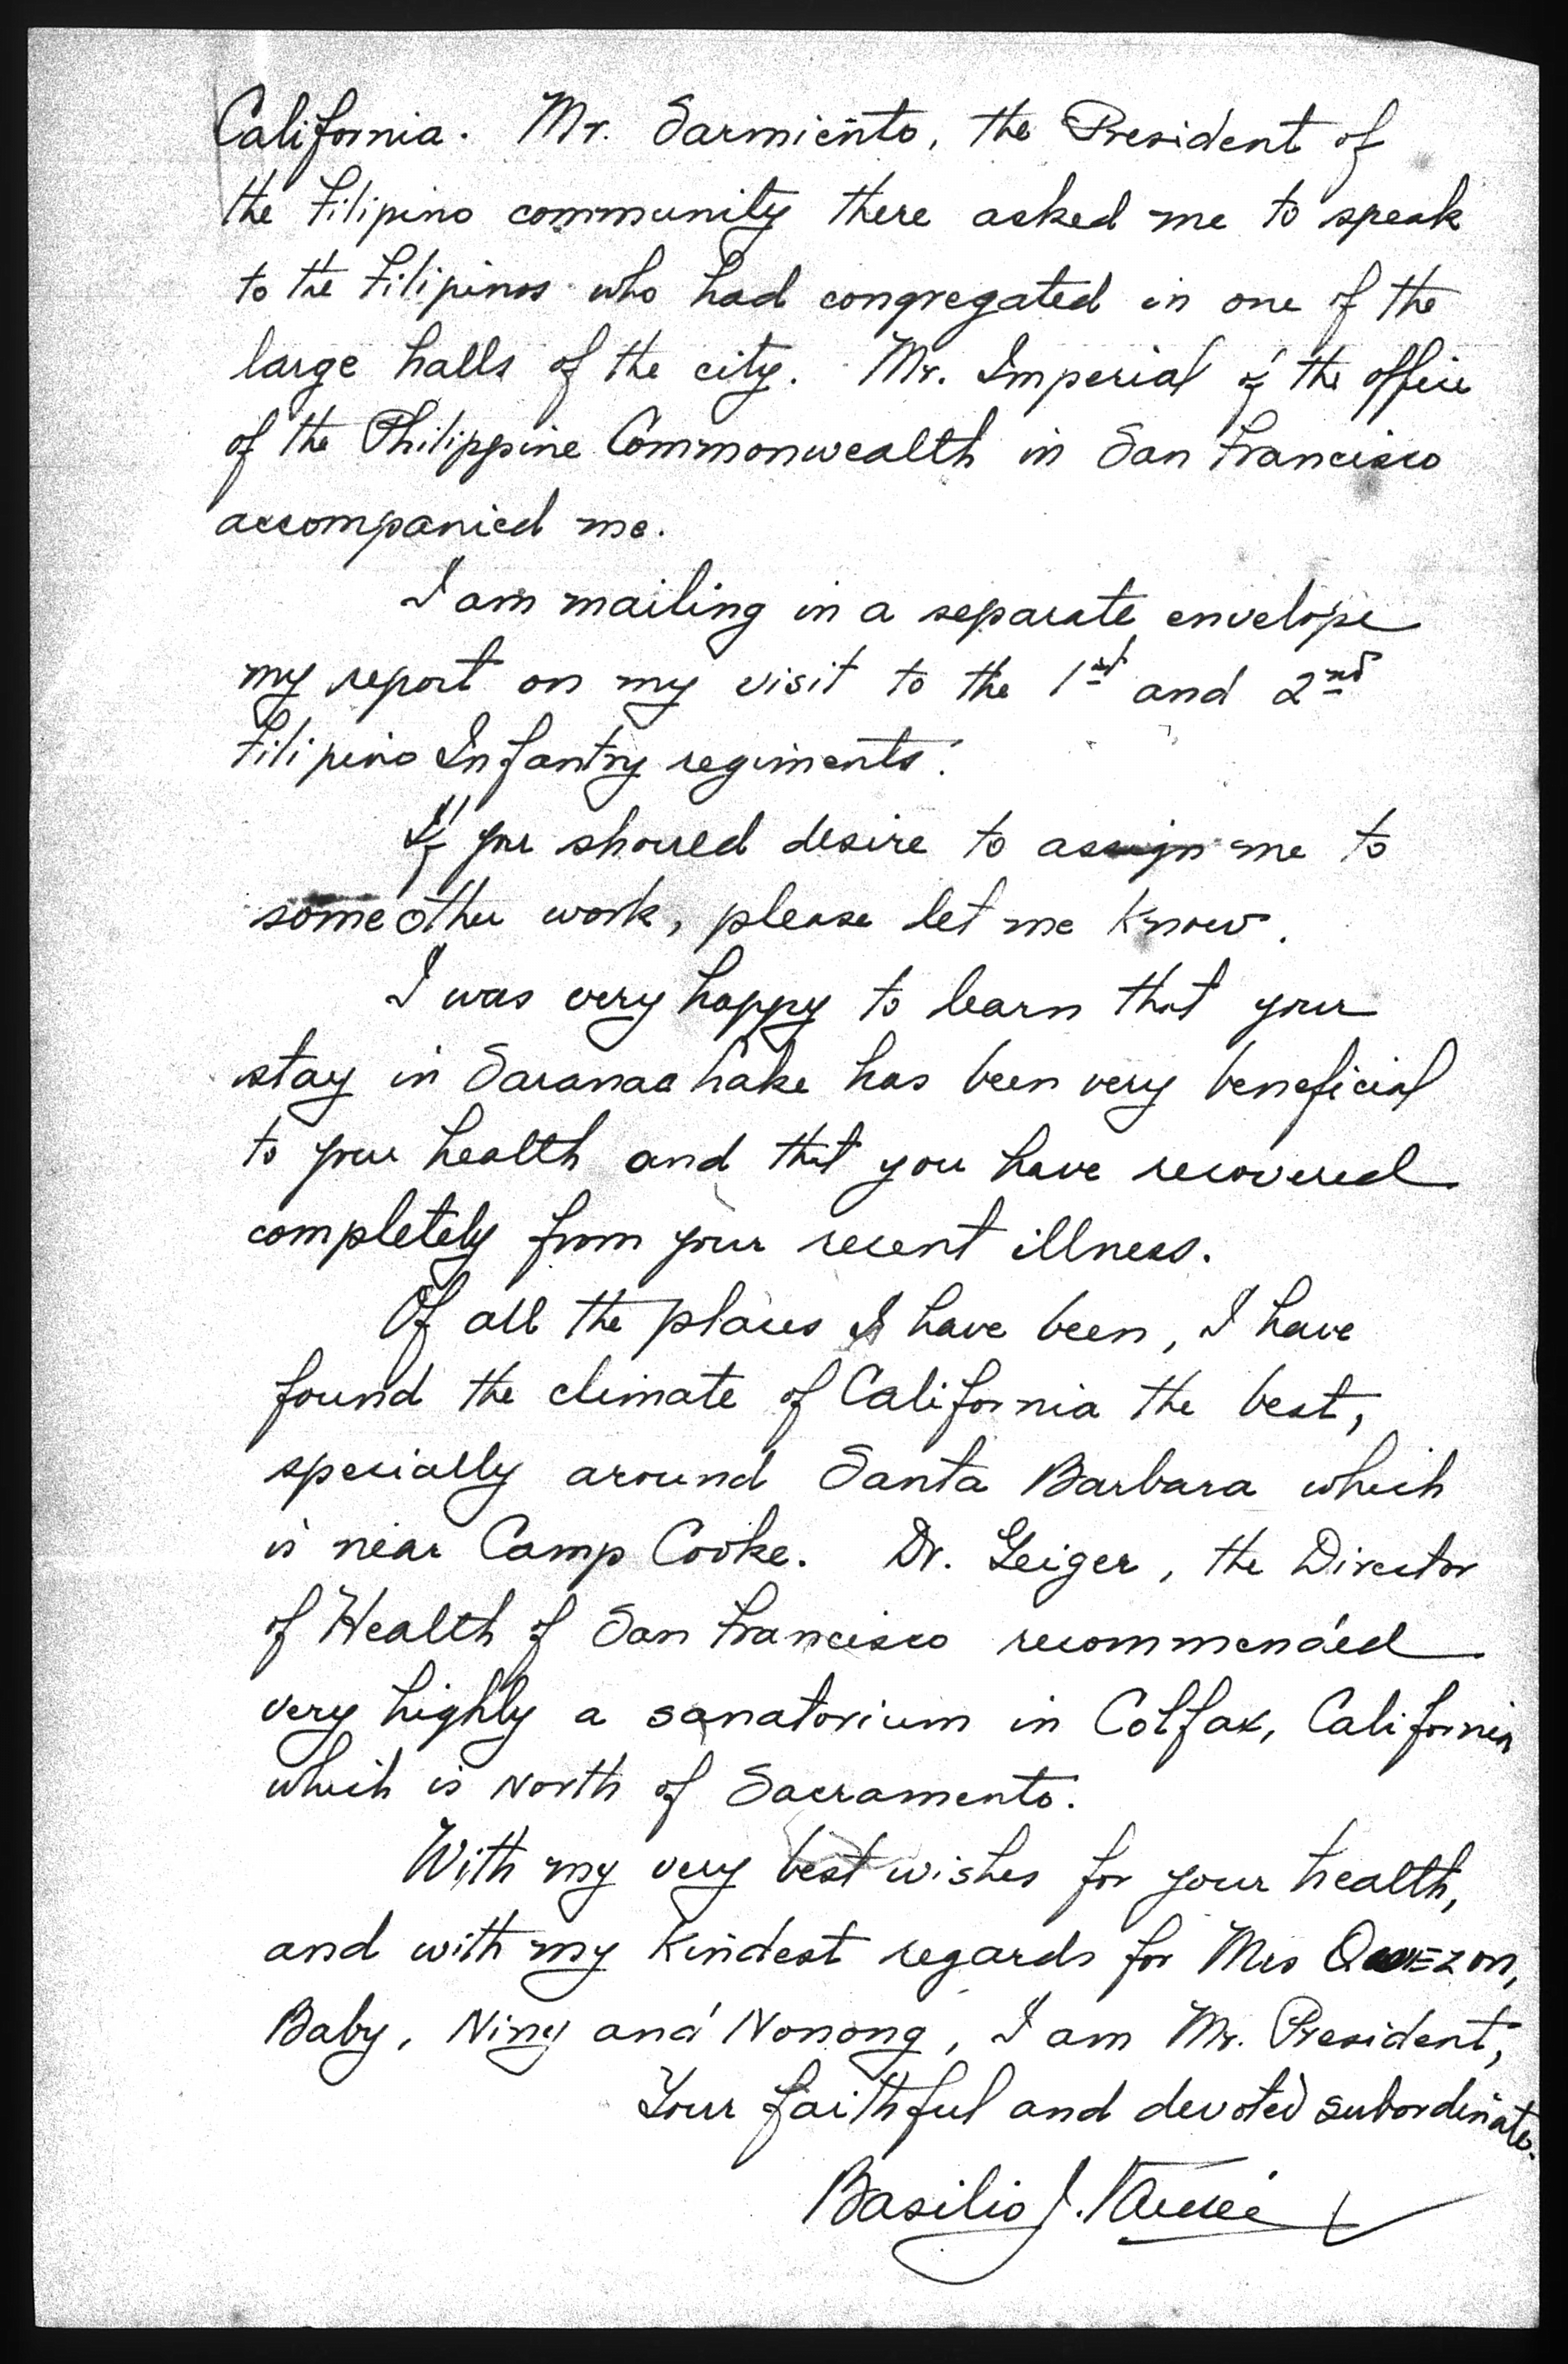 California. Mr. Sarmiento, the President of
the Filipino community there asked me to speak
to the Filipinos who had congregated in one of the
large halls of the city. Mr. Imperial of the office
of the Philippine Commonwealth in San Francisco
accompanied me.
I am mailing in a separate envelope
my report on my visit to the 1st and 2nd
Filipino Infantry regiments.
If you should desire to assign me to
some other work, please let me know.
I was very happy to learn that your
stay in Saranac Lake has been very beneficial
to your health and that you have recovered
completely from your recent illness.
Of all the places I have been, I have
found the climate of California the best,
specially around Santa Barbara which
is near Camp Cooke. Dr. Geiger, the Director
of Health of San Francisco recommended
very highly a sanatorium in Colfax, California
which is North of Sacramento.
With my very best wishes for your health,
and with my kindest regards for Mrs Quezon,
Baby, Niny and Nonong, I am Mr. President,
Your faithful and devoted subordinate.
Basilio J. Valdes